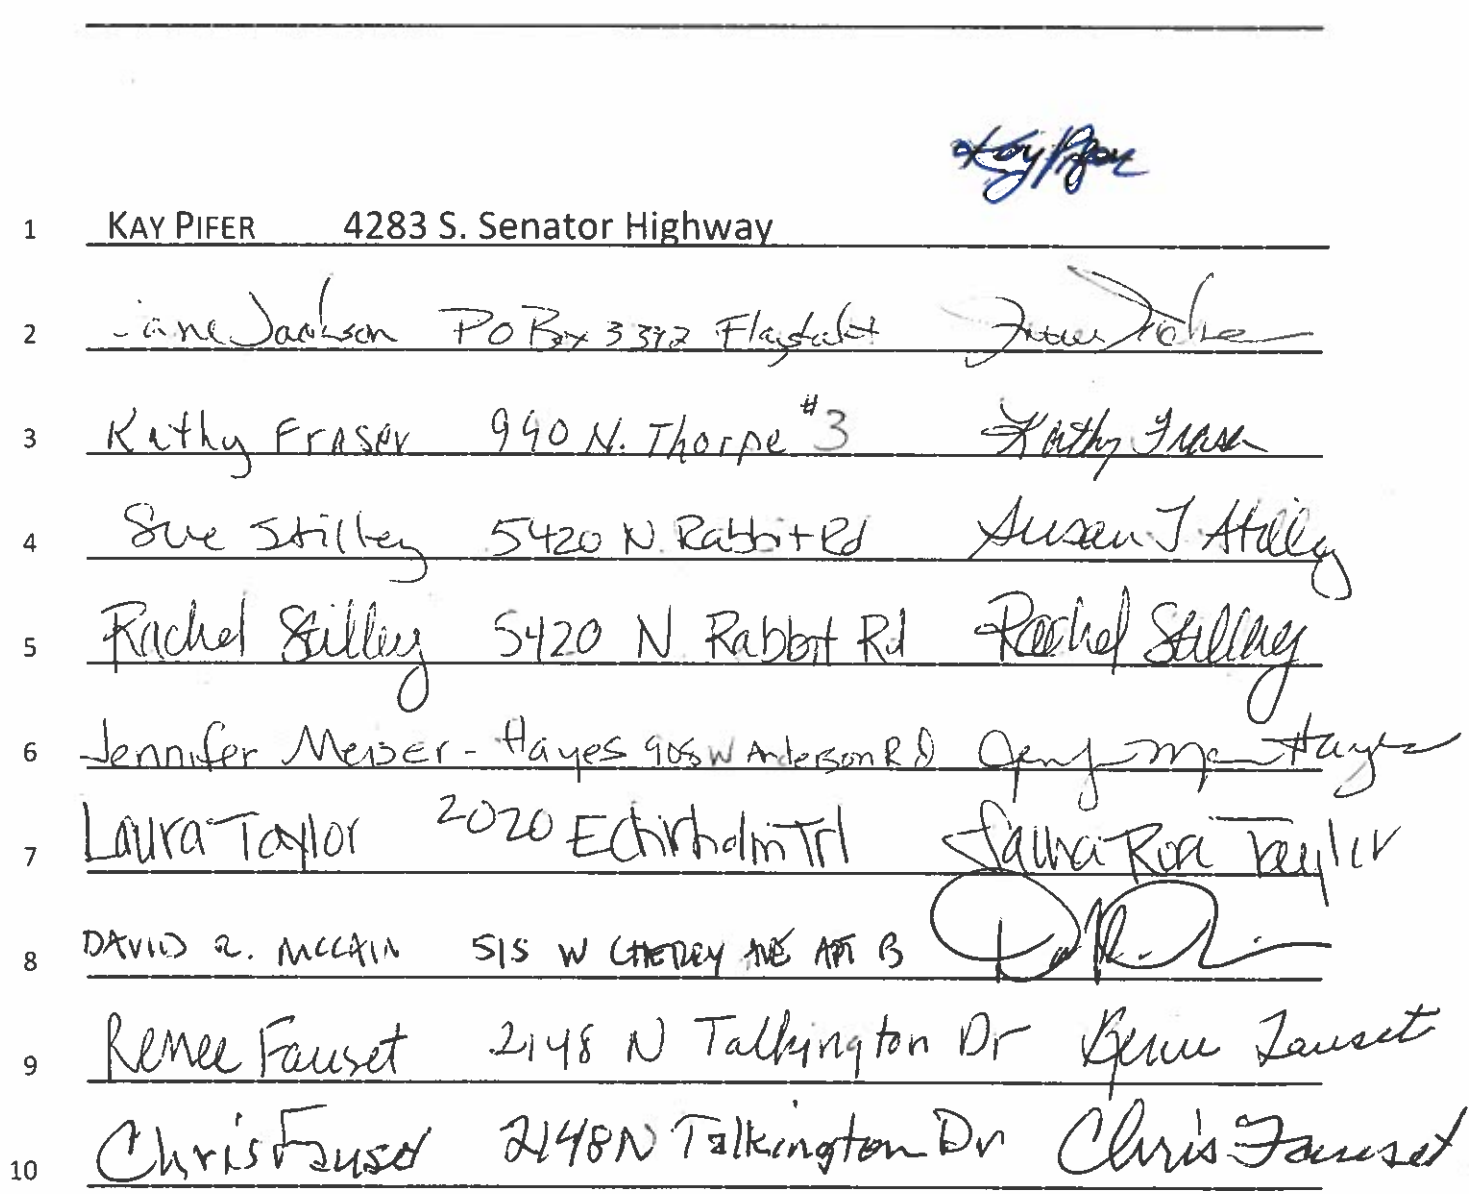 Kay Pifer
1 KAY PIFER 4283 S. Senator Highway
2 Jane Jackson PO Box 3392 Flagstaff
3 Kathy Fraser 990 N. Thorpe #3 Kathy Fraser
4 Sue Stilley 5420 N. Rabbit Rd Susan J Stilley
5 Rachel Stilley 5420 N Rabbit Rd Rachel Stilley
6 Jennifer Meiser-Hayes 905 W Anderson Rd
7 Laura Taylor 2020 E Trl Laura Taylor
8 DAVID R. MCCAIN 515 W CHERRY AVE APT B
9 Renee Fauset 2148 N Talkington Dr Renee Fauset
10 Chris Fauset 2148 N Talkington Dr Chris Fauset